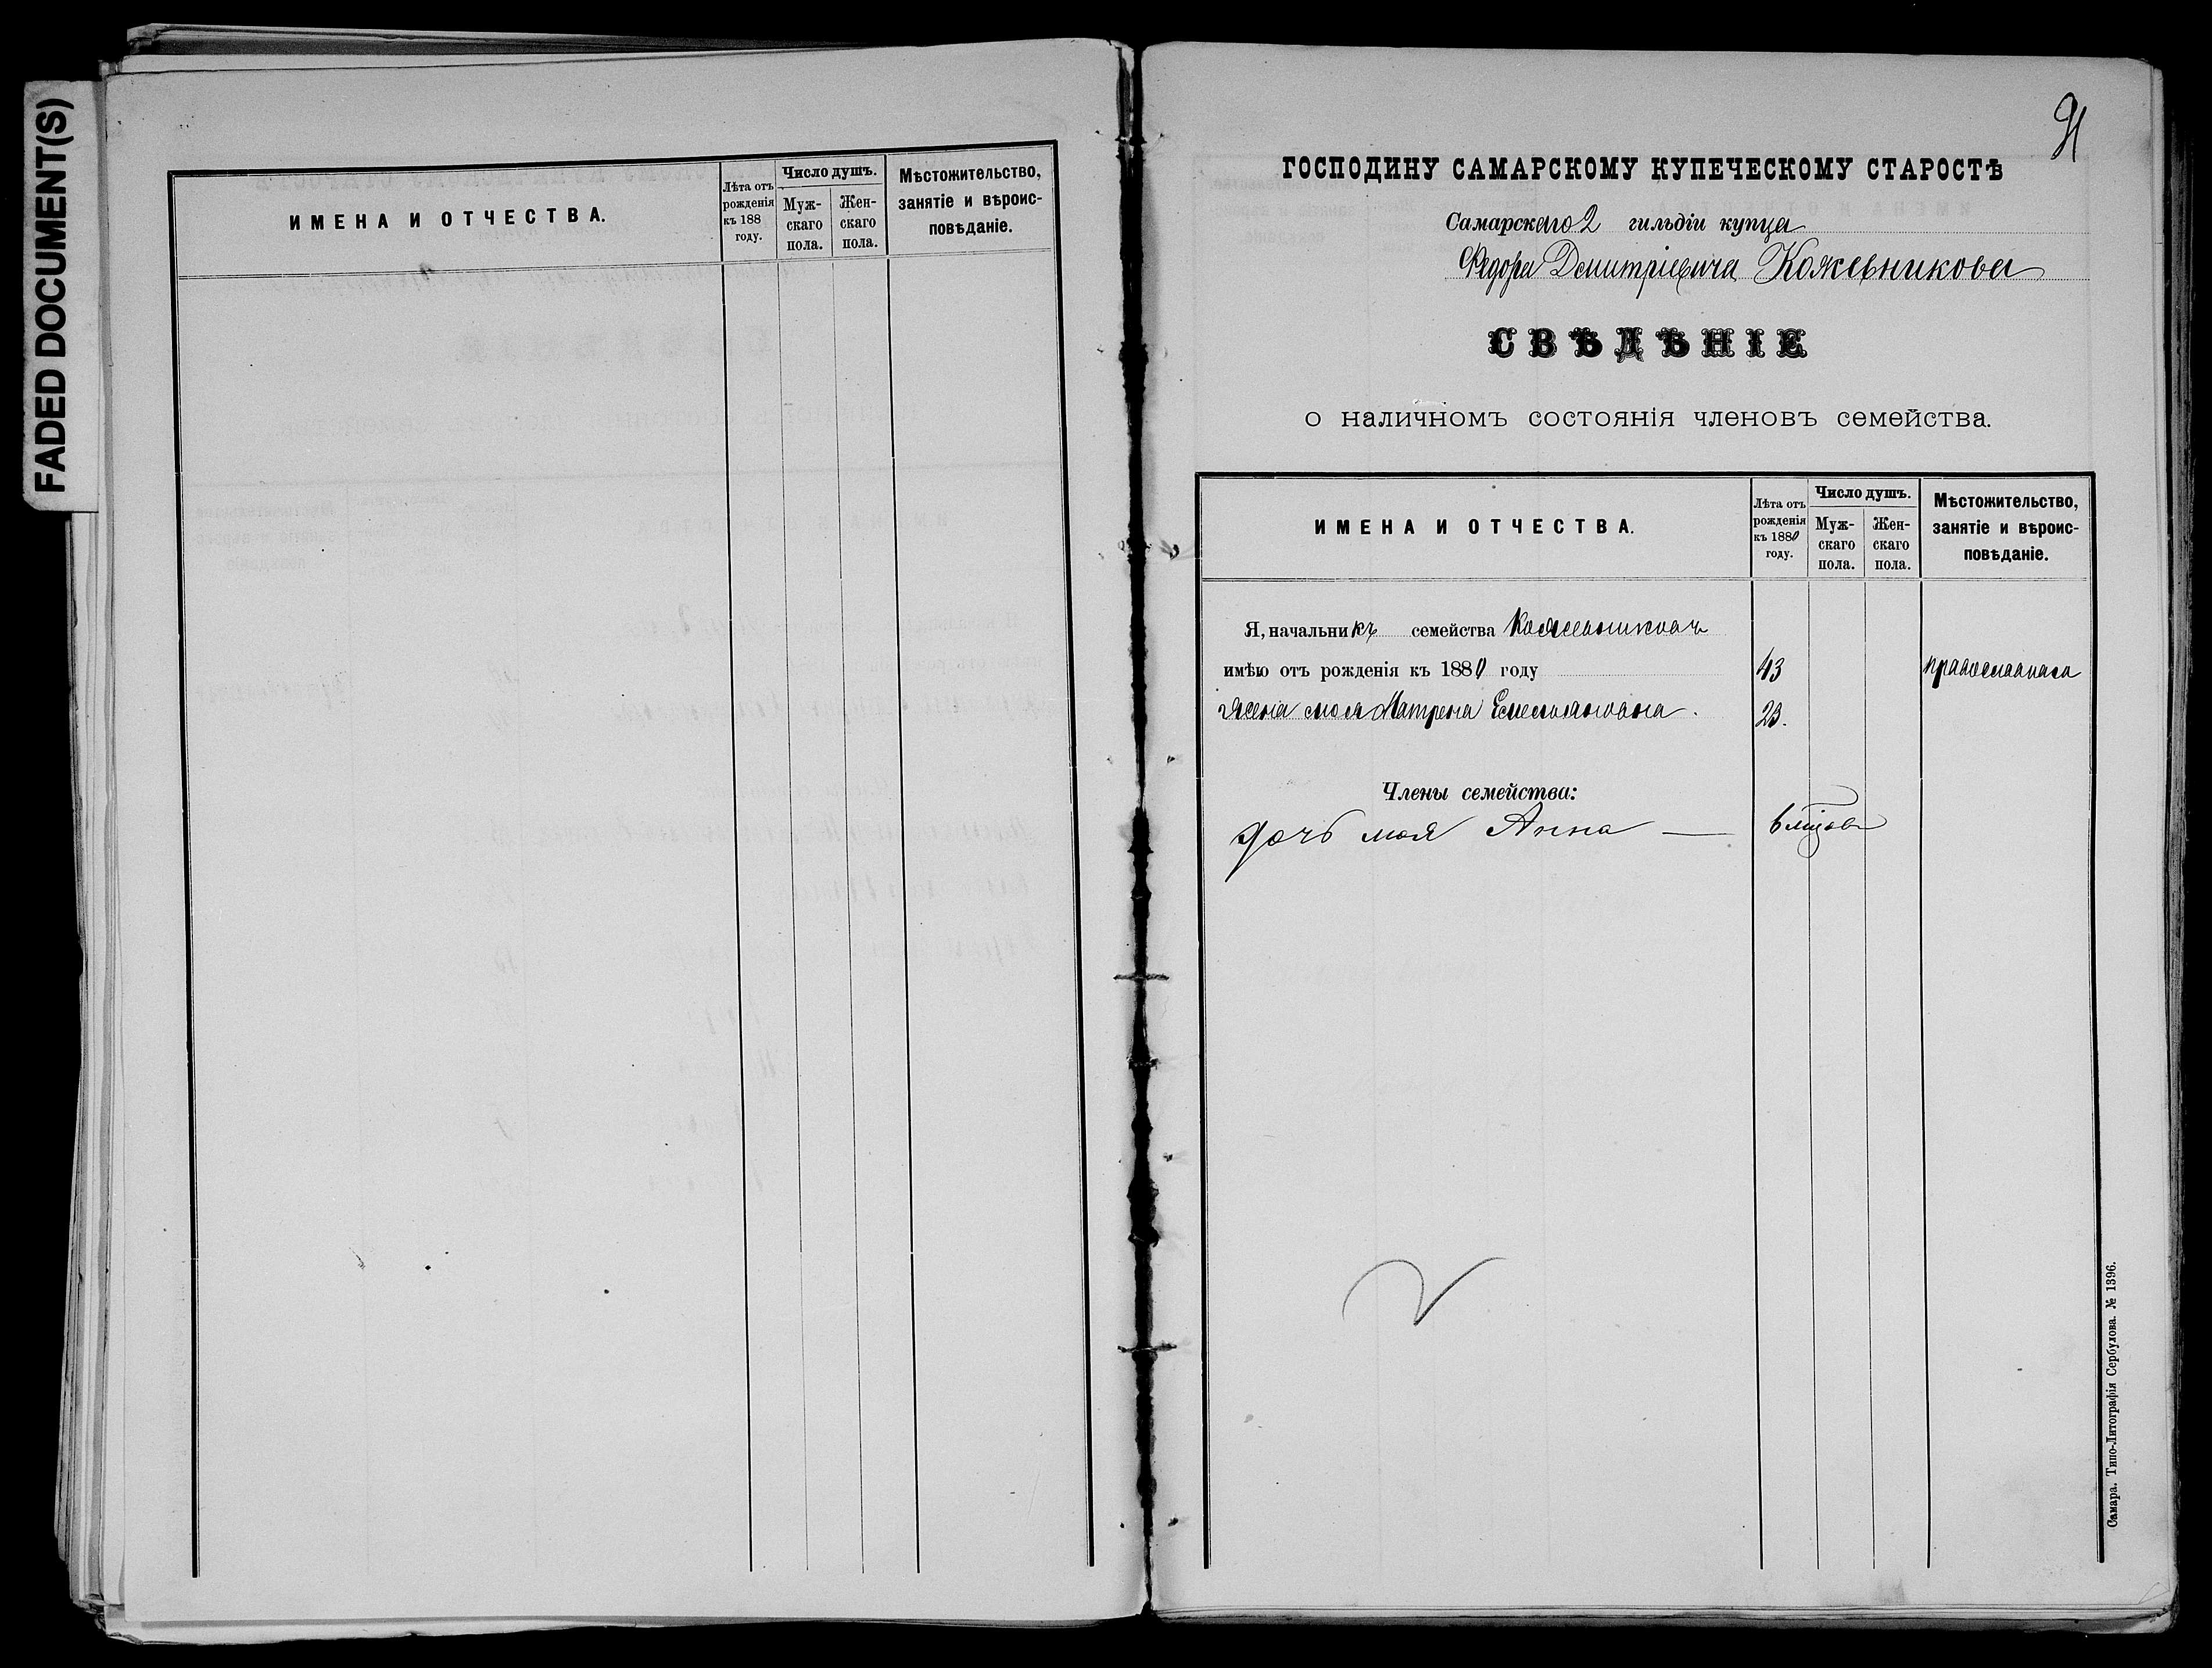 FADED DOCUMENT(S)
ИМЕНА И ОТЧЕСТВА.
Лѣта отъ рожденія къ 188 году.
Число душъ.
Мужскаго пола.
Женскаго пола.
Мѣстожительство, занятіе и вѣроисповѣданіе.
91
ГОСПОДИНУ САМАРСКОМУ КУПЕЧЕСКОМУ СТАРОСТѢ
Самарскаго 2 гильдіи купца
Федора Дмитріевича Кожевникова
СВѢДѢНІЕ
о наличномъ состоянія членовъ семейства.
ИМЕНА И ОТЧЕСТВА.
Лѣта отъ
рожденія
къ 1880
году.
Число душъ.
Муж-
скаго
пола.
Жен-
скаго
пола.
Мѣстожительство,
занятіе и вѣроис-
повѣданіе.
Я, начальникъ семейства Кожевниковъ
имѣю отъ рожденія къ 1880 году 43
Жена моя Матрена Емельяновна. 23.
Члены семейства:
дочь моя Анна —
Самара. Типо-Литографія Сербулова. № 1396.